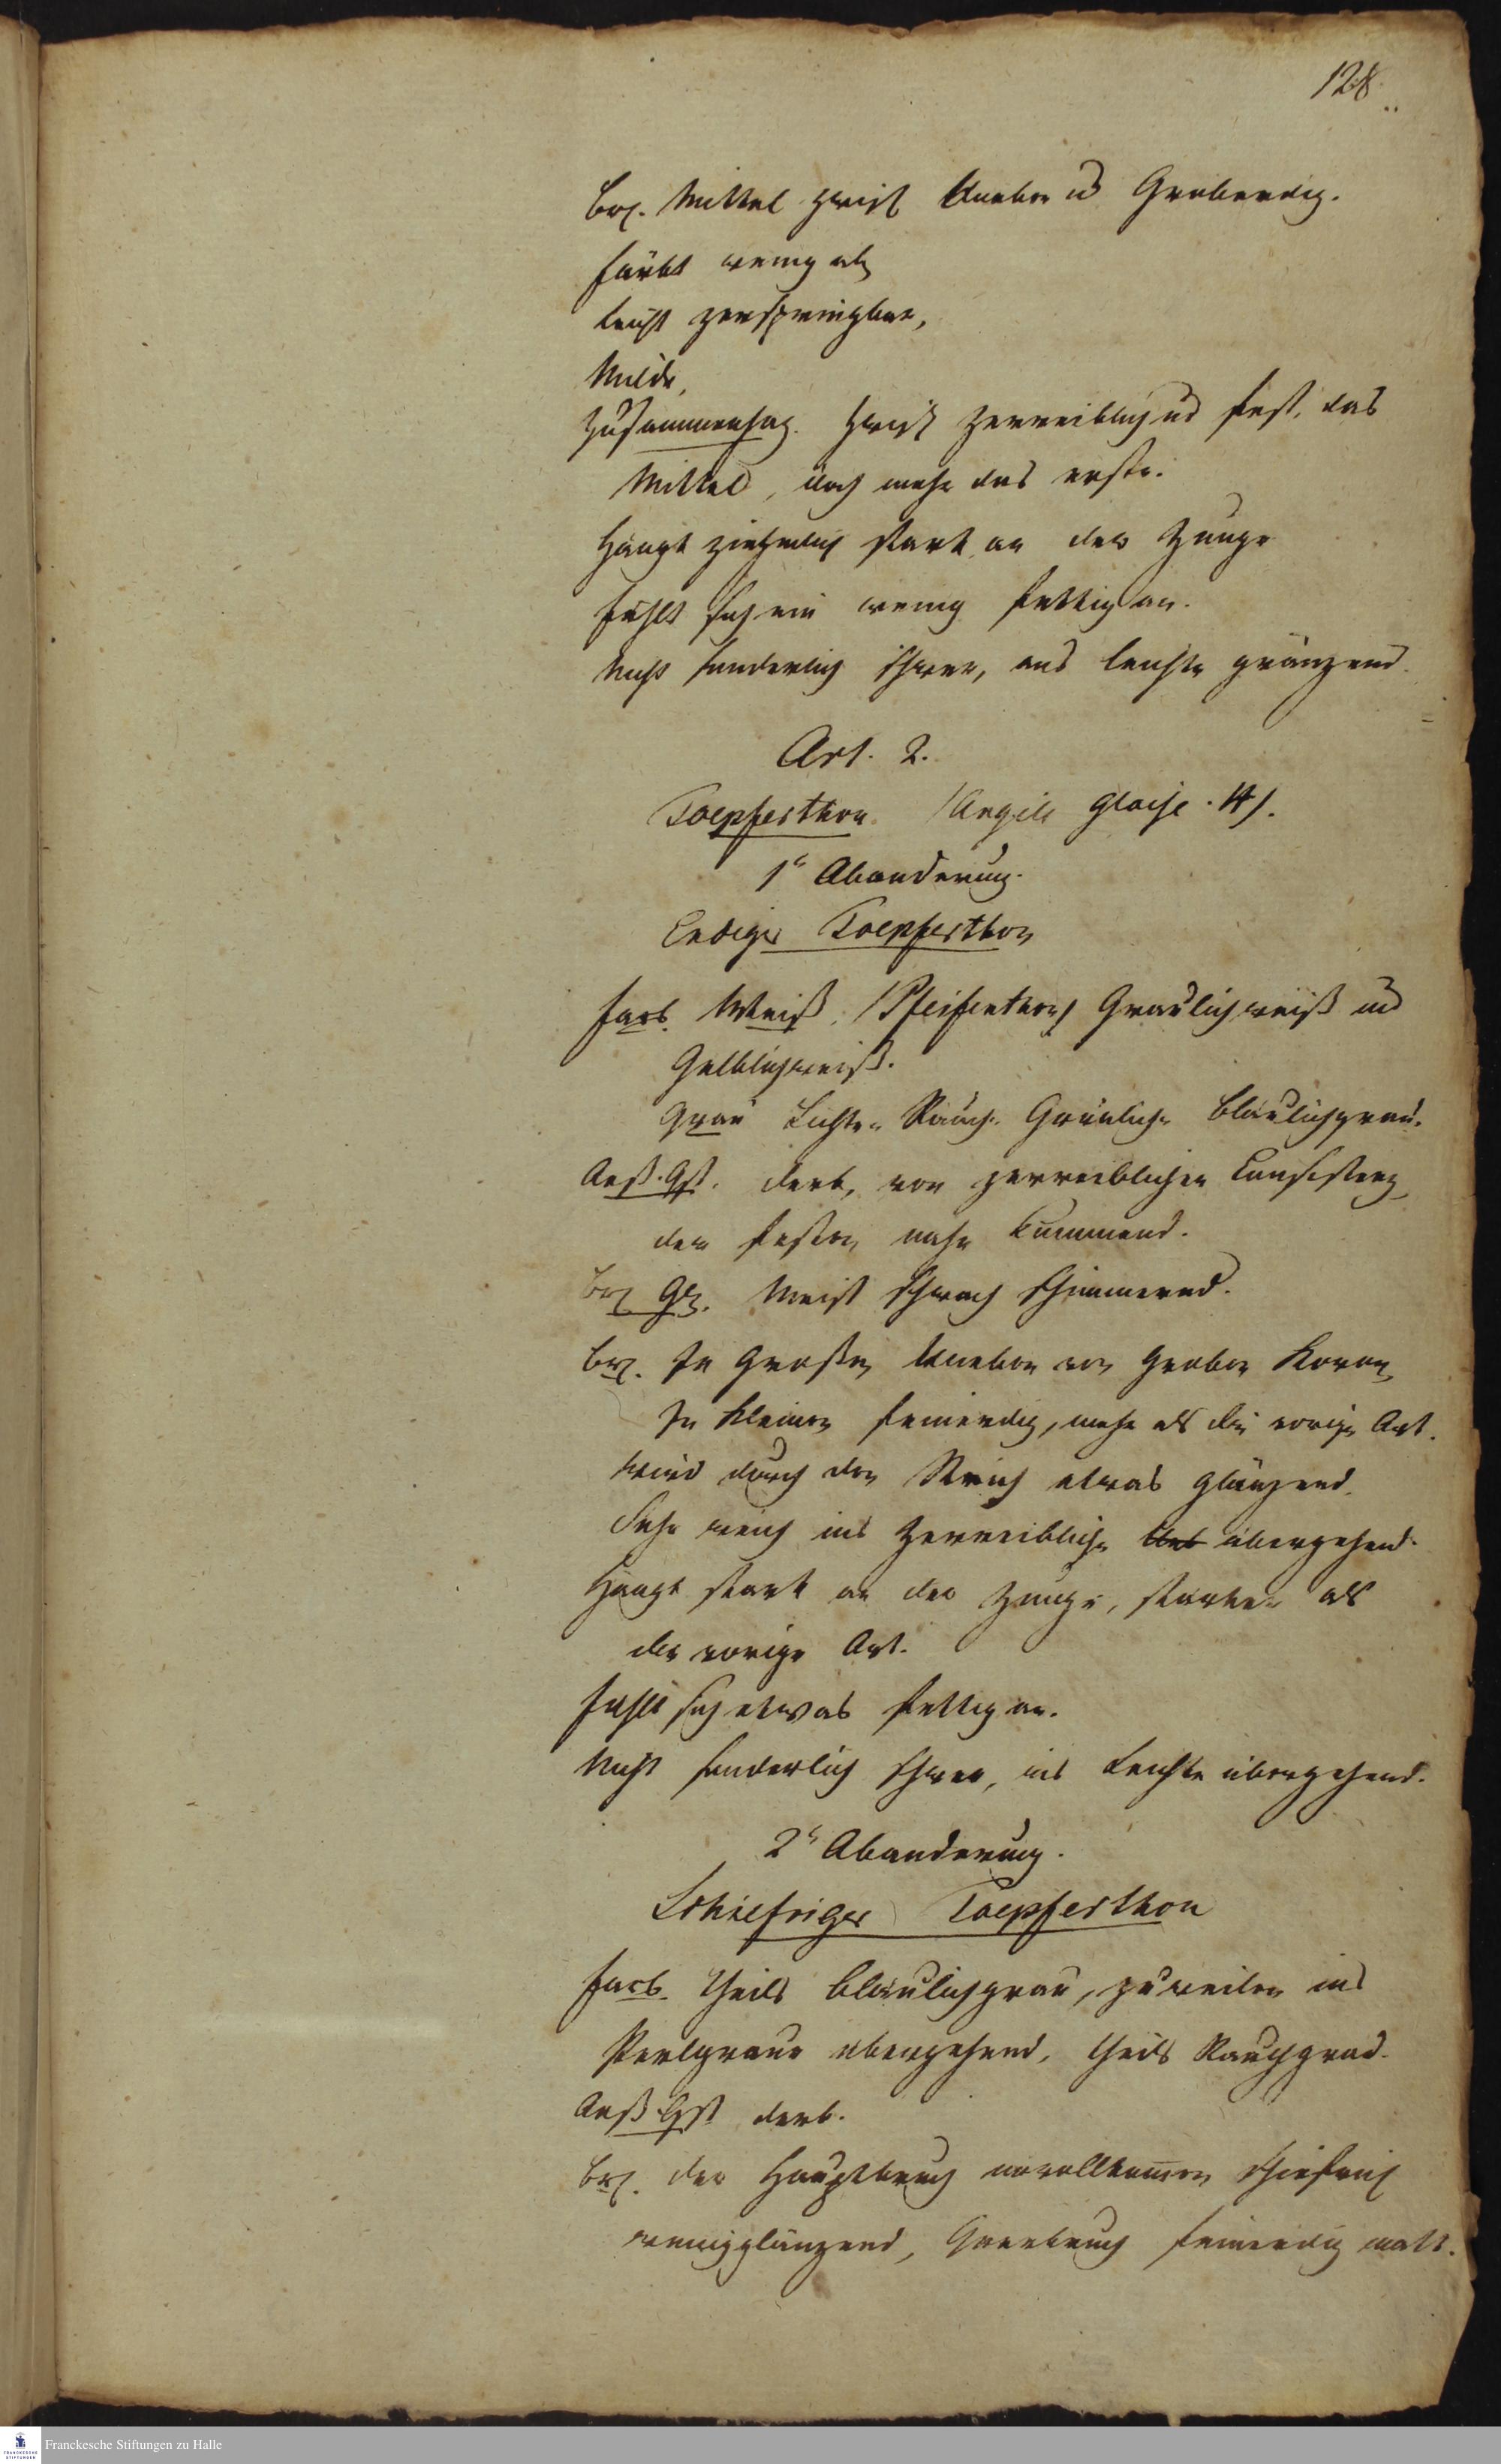 128
Br. Mittel zwisch Uneben u Groberdig.
Färbt wenig ab,
Leicht zerspringbar,
Milde,
Zusammenhag. Zwisch zerreiblich und fest, das
Mittel, doch mehr das erste.
Hängt ziehmlich stark an der Zunge
Fühlt sich ein wenig fettig an.
Nicht sonderlich schwer, ans leichte gränzend.
Art. 2.
Toepferthon /Argile Glaise. H/.
1e Abanderung.
Erdiger Toepferthon
Farb. Weiß, /Pfeifenthon/ Graulichweiß und
Gelblichweiß.
Grau Lichte- Rauch- Grünlich- Blaulichgrau.
Aeß. Gst. derb, von zerreiblicher Consistenz,
der festen nahe kummend.
Br Gl. Meist schwach schimmernd.
Br. In Großen Uneben von Groben Koren,
In Kleinen feinerdig, mehr als die vorige Art.
Wird durch den Strich etwas glänzend.
Sehr weich ins Zerreibliche übergehend.
Hängt stark an der Zunge, starker als
die vorige Art.
Fühlt sich etwas fettig an.
Nicht sonderlich schwer, ins Leichte übergehend.
2e Abanderung.
Schiefriger Toepferthon
Farb. Theils Blaulichgrau, zuweilen ins
Perlgraue übergehend, theils Rauchgrau.
Aeß Gst derb.
Br. der Hauptbruch unvollkomen schiefrich
wenigglänzend, Querbruch feinerdig matt.
Franckesche Stiftungen zu Halle
FRANCKESCHE
STIFTUNGEN